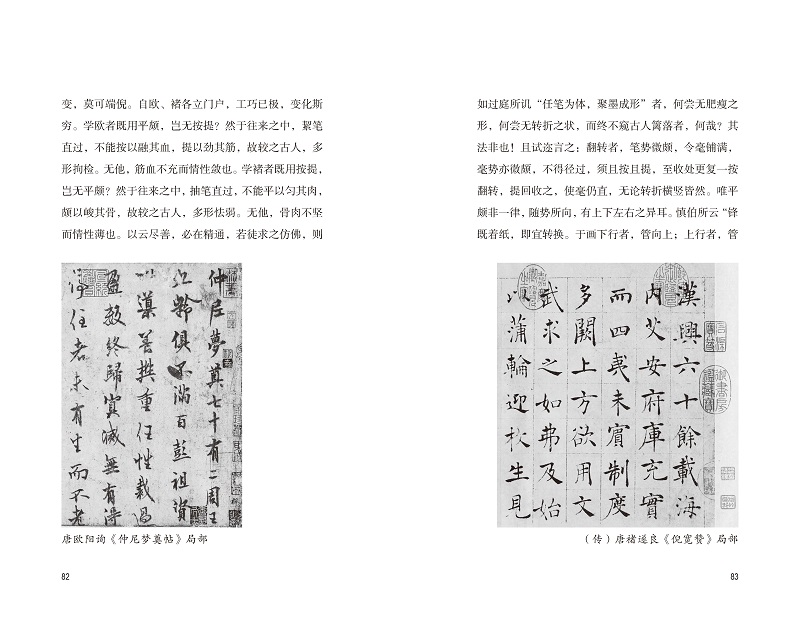 变，莫可端倪。自欧、褚各立门户，工巧已极，变化斯
穷。学欧者既用平颇，岂无按提？然于往来之中，絜笔
直过，不能按以融其血，提以劲其筋，故较之古人，多
形拘检。无他，筋血不充而情性敛也。学褚者既用按提，
岂无平颇？然于往来之中，抽笔直过，不能平以匀其肉，
颇以峻其骨，故较之古人，多形怯弱。无他，骨肉不坚
而情性薄也。以云尽善，必在精通，若徒求之仿佛，则
仲尼夢奠七十有二周王
九齡俱不滿百彭祖資
以導養樊重任性裁過
盈數終歸冥滅無有得
停住者未有生而不老
唐欧阳询《仲尼梦奠帖》局部
82
如过庭所讥“任笔为体，聚墨成形”者，何尝无肥瘦之
形，何尝无转折之状，而终不窥古人篱落者，何哉？其
法非也！且试迩言之；翻转者，笔势微颇，令毫铺满，
毫势亦微颇，不得径过，须且按且提，至收处更复一按
翻转，提回收之，使毫仍直，无论转折横竖皆然。唯平
颇非一律，随势所向，有上下左右之异耳。慎伯所云“锋
既着纸，即宜转换。于画下行者，管向上；上行者，管
漢興六十餘載海
内艾安府庫充實
而四夷未賓制度
多闕上方欲用文
武求之如弗及始
以蒲輪迎枚生見
（传）唐褚遂良《倪宽赞》局部
83